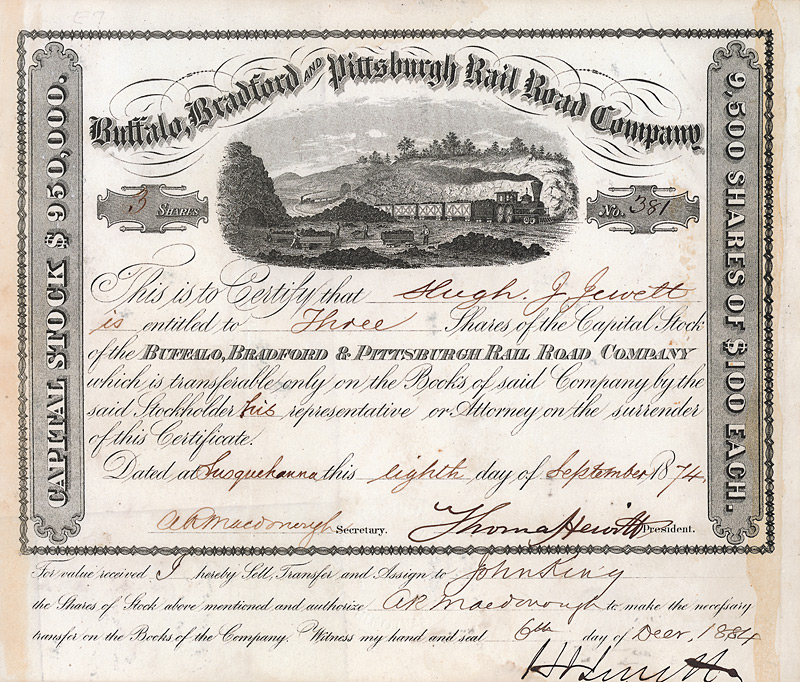 E7
Buffalo, Bradford AND Pittsburgh Rail Road Company
CAPITAL STOCK $950,000.
9,500 SHARES OF $100 EACH.
3 SHARES
No. 381
This is to Certify that Hugh. J. Jewett
is entitled to Three Shares of the Capital Stock
of the BUFFALO, BRADFORD & PITTSBURGH RAIL ROAD COMPANY
which is transferable only on the Books of said Company by the
said Stockholder his representative or Attorney on the surrender
of this Certificate.
Dated at Susquehanna this eighth day of September 1874.
A R Macdonough Secretary. Thomas Hewitt President.
For value received I hereby Sell, Transfer and Assign to John King
the Shares of Stock above mentioned and authorize A R Macdonough to make the necessary
transfer on the Books of the Company. Witness my hand and seal 6th day of Decr, 1884
H J Jewett